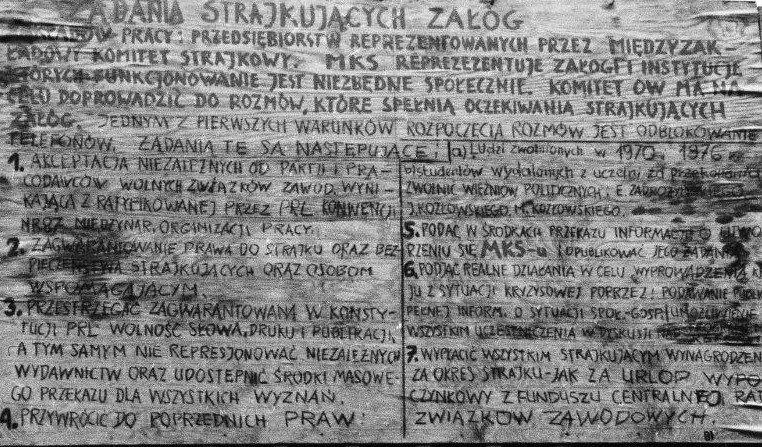 ŻĄDANIA STRAJKUJĄCYCH ZAŁÓG
PRACY I PRZEDSIĘBIORSTW REPREZENTOWANYCH PRZEZ MIĘDZYZAK-
ŁADOWY KOMITET STRAJKOWY. MKS REPREZENTUJE ZAŁOGI I INSTYTUCJE
KTÓRYCH FUNKCJONOWANIE JEST NIEZBĘDNE SPOŁECZNIE. KOMITET ÓW MA NA
CELU DOPROWADZIĆ DO ROZMÓW, KTÓRE SPEŁNIĄ OCZEKIWANIA STRAJKUJĄCYCH
ZAŁÓG. JEDNYM Z PIERWSZYCH WARUNKÓW ROZPOCZĘCIA ROZMÓW JEST ODBLOKOWANIE
TELEFONÓW. ŻĄDANIA TE SĄ NASTĘPUJĄCE:
1. AKCEPTACJA NIEZALEŻNYCH OD PARTJI I PRA-
CODAWCÓW WOLNYCH ZWIĄZKÓW ZAWOD. WYNI-
KAJĄCA Z RATYFIKOWANEJ PRZEZ PRL KONWENCJI
NR 87 MIĘDZYNAR. ORGANIZACJI PRACY.
2. ZAGWARANTOWANIE PRAWA DO STRAJKU ORAZ BEZ-
PIECZEŃSTWA STRAJKUJĄCYCH ORAZ OSOBOM
WSPOMAGAJĄCYM.
3. PRZESTRZEGAĆ ZAGWARANTOWANĄ W KONSTY-
TUCJI PRL WOLNOŚĆ SŁOWA, DRUKU I PUBLIKACJI,
A TYM SAMYM NIE REPRESJONOWAĆ NIEZALEŻNYCH
WYDAWNICTW ORAZ UDOSTĘPNIĆ ŚRODKI MASOWE-
GO PRZEKAZU DLA WSZYSTKICH WYZNAŃ.
4. PRZYWRÓCIĆ DO POPRZEDNICH PRAW:
(a) Ludzi zwolnionych w 1970 i 1976
b) studentów wydalonych z uczelni za przekonania
ZWOLNIĆ WIĘŹNIÓW POLITYCZNYCH; E. ZADROŻYŃSKIEGO
J. KOZŁOWSKIEGO, M. KOZŁOWSKIEGO.
5. PODAĆ W ŚRODKACH PRZEKAZU INFORMACJĘ O UTWO-
RZENIU SIĘ MKS-u I OPUBLIKOWAĆ JEGO ŻĄDANIA
6. PODJĄĆ REALNE DZIAŁANIA W CELU WYPROWADZENIA KRA
JU Z SYTUACJI KRYZYSOWEJ POPRZEZ: PODAWANIE PUBLI
PEŁNEJ INFORM. O SYTUACJI SPOŁ.-GOSP. UMOŻLIWIENIE
WSZYSTKIM UCZESTNICZENIA W DYSKUSJI
7. WYPŁACIĆ WSZYSTKIM STRAJKUJĄCYM WYNAGRODZEN
ZA OKRES STRAJKU - JAK ZA URLOP WYPO
CZYNKOWY Z FUNDUSZU CENTRALNEJ RAD
ZWIĄZKÓW ZAWODOWYCH.